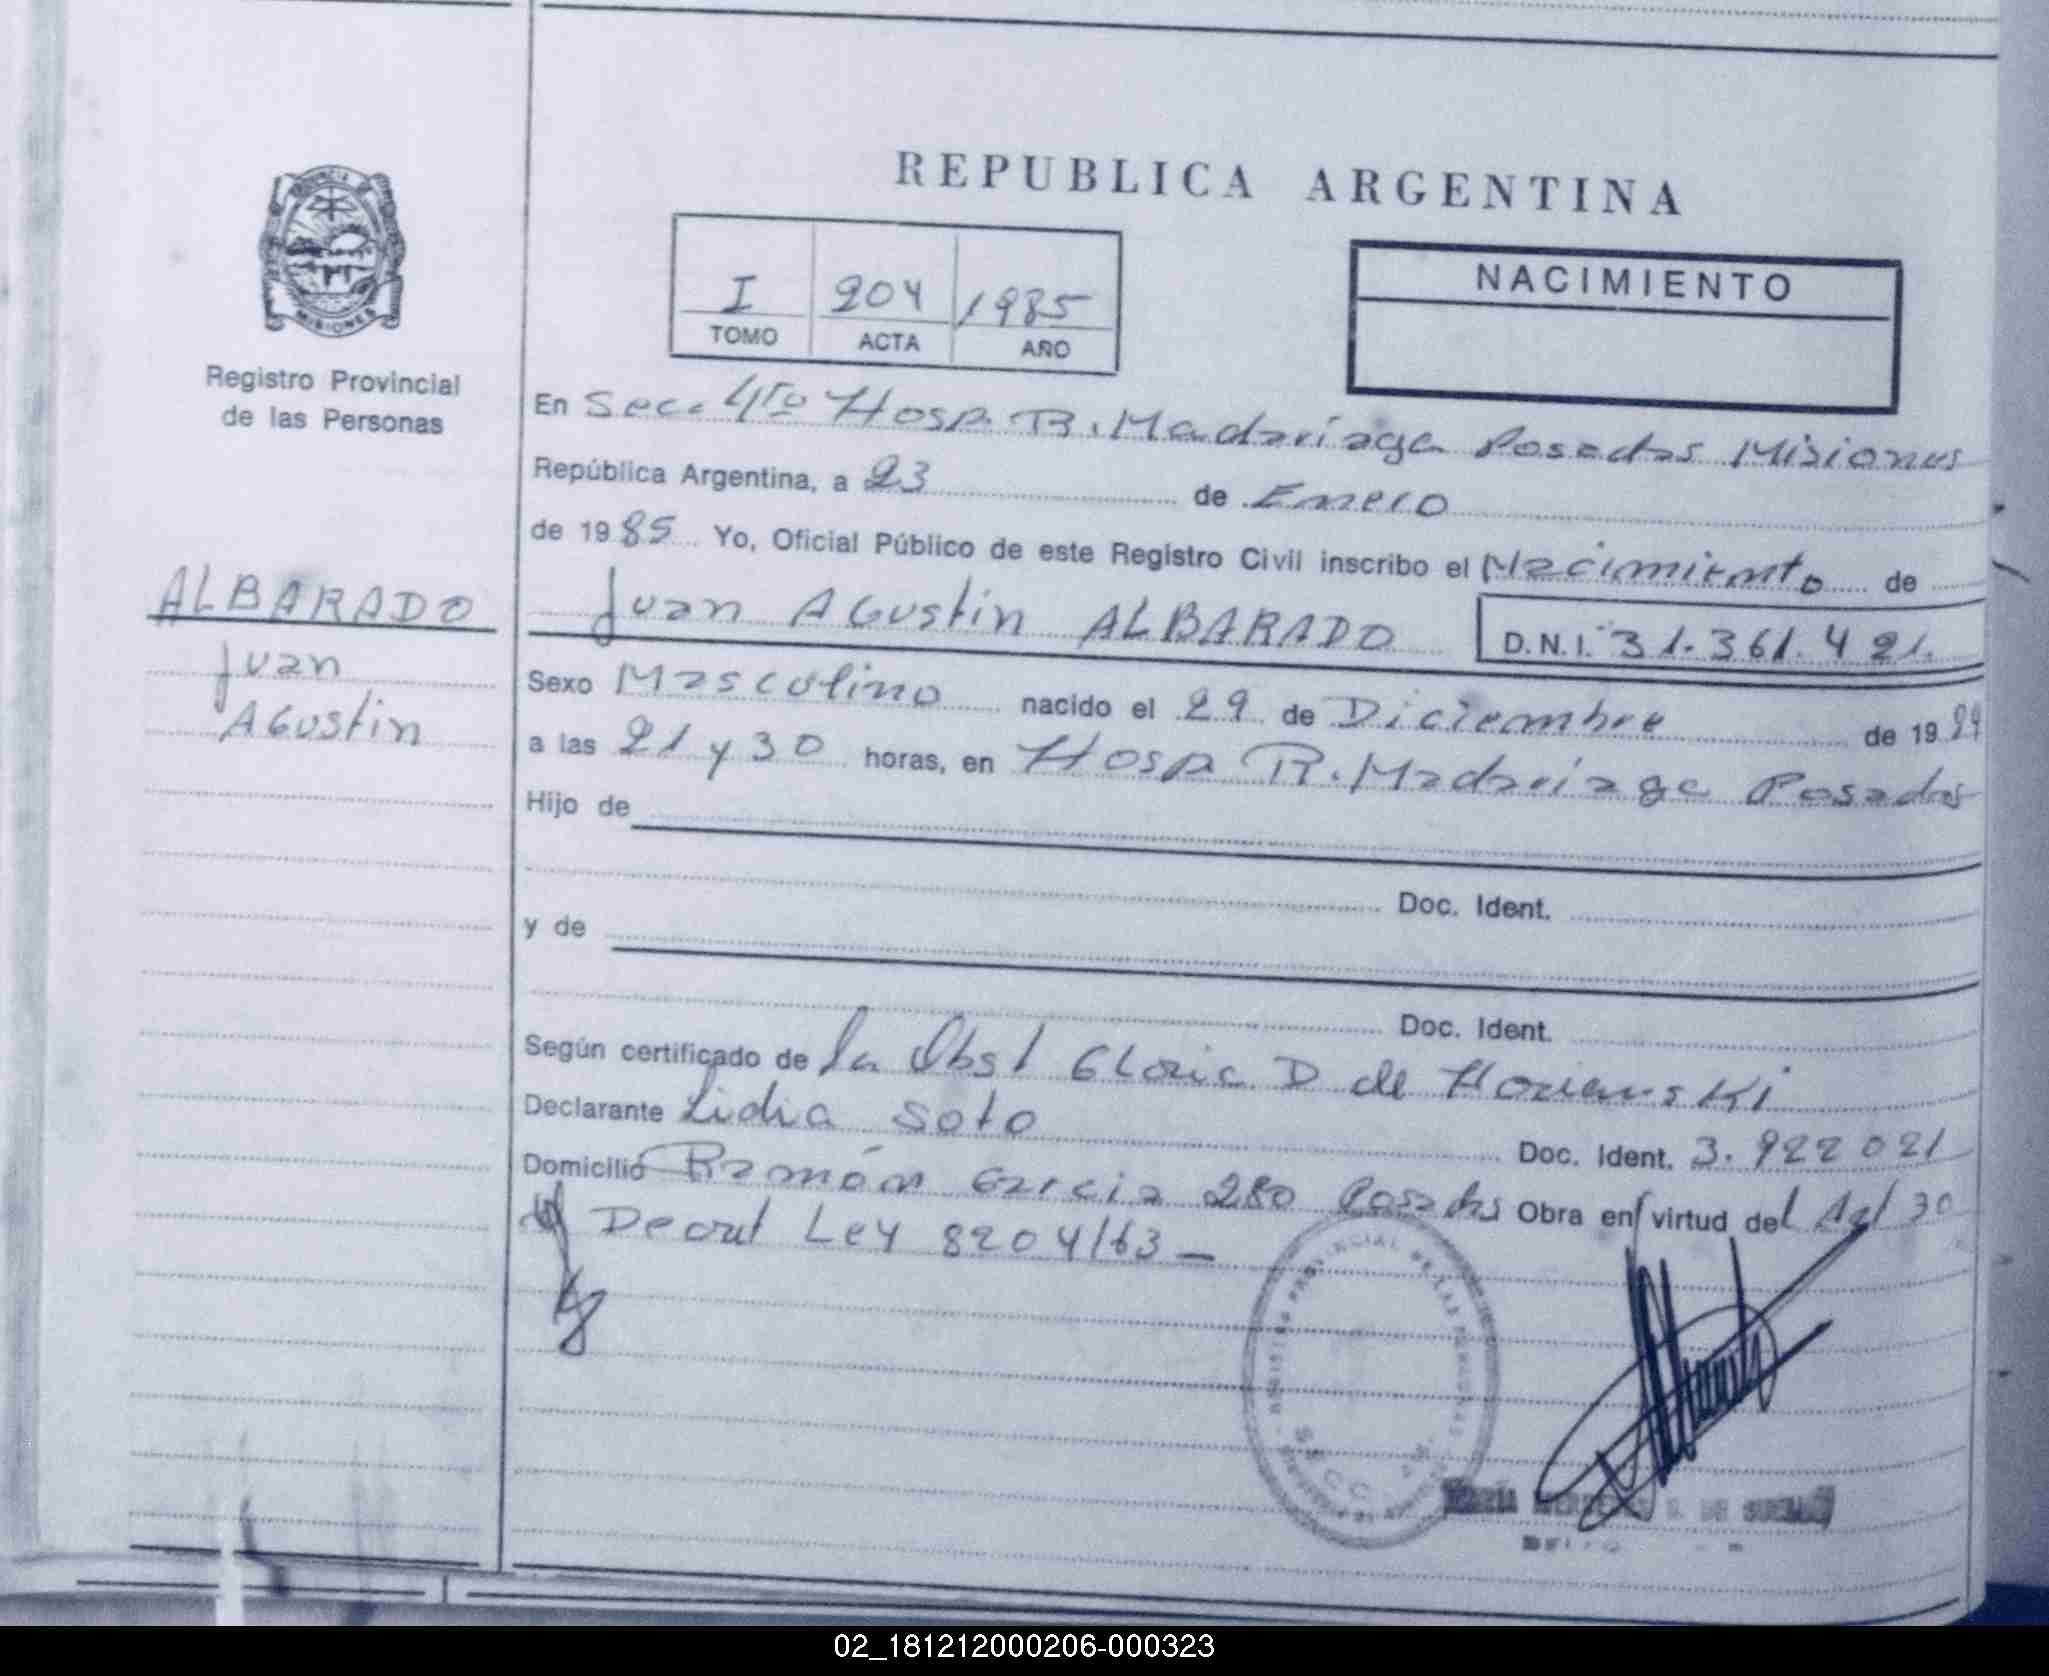 REPUBLICA ARGENTINA
PROVINCIA DE
MISIONES
Registro Provincial
de las Personas
I 204 1985
TOMO ACTA AÑO
NACIMIENTO
En Sec. 4ta Hosp. R. Madariaga Posadas Misiones
República Argentina, a 23 de Enero
de 1985 Yo, Oficial Público de este Registro Civil inscribo el Nacimiento de
Juan Agustin ALBARADO D.N.I. 31.361.421.
ALBARADO
Juan
Agustin
Sexo Masculino nacido el 29 de Diciembre de 1984
a las 21 y 30 horas, en Hosp R. Madariaga Posadas
Hijo de
Doc. Ident.
y de
Doc. Ident.
Según certificado de la Obst Gloria D de
Declarante Lidia Soto Doc. Ident. 3.922021
Domicilio Ramón Garcia 280 Posadas Obra en virtud del Art 30
Decret Ley 8204/63 —
PROVINCIAL DE LAS PERSONAS
SECC.
MARÍA DE
02_181212000206-000323